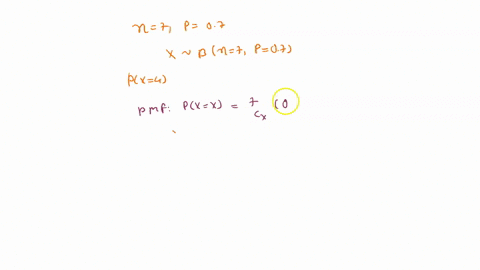 n=7, P= 0.7
X ~ B (n=7, P=0.7)
P(X=4)
pmf: P(X=x) = 7Cx (0